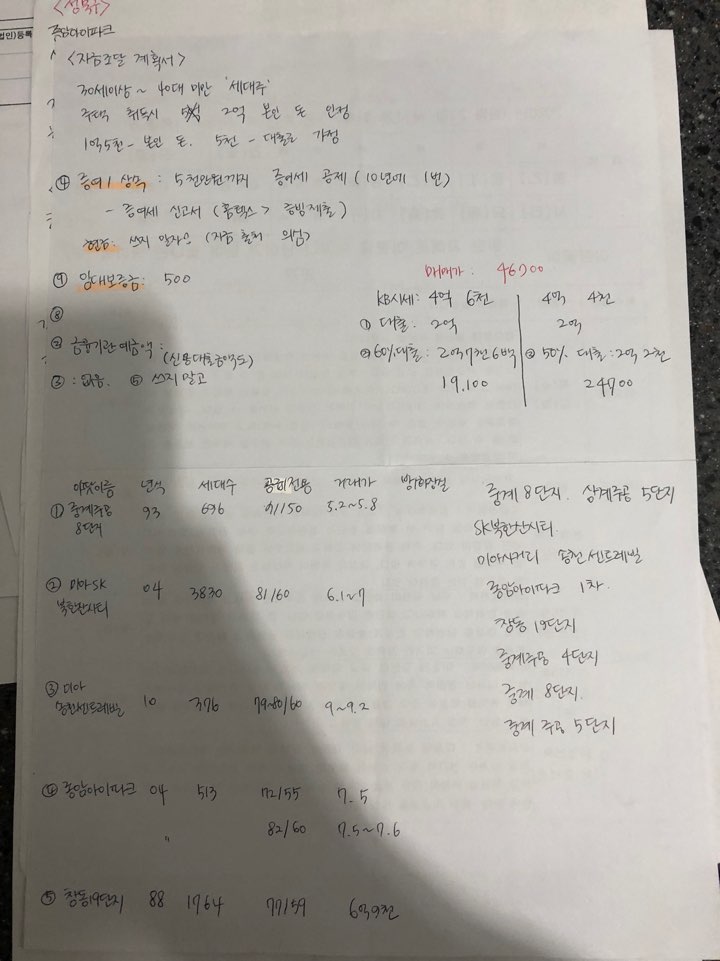 <성북구>
종암아이파크
<자금조달 계획서>
30세이상 ~ 40대 미만 '세대주'
주택 취득시 2억 본인 돈 인정
1억5천 - 본인 돈. 5천 - 대출로 가정
④ 증여 상속 : 5천만원까지 증여세 공제 (10년에 1번)
- 증여세 신고서 (홈택스 > 증빙제출)
현금: 쓰지 말자 (자금 출처 의심)
⑨ 임대보증금: 500
매매가 : 46700
KB시세: 4억 6천 4억 4천
⑧
① 대출: 2억 2억
② 금융기관 예금액 :
(신용대출금액도)
② 60% 대출 : 2억7천6백 ② 50% 대출 : 2억 2천
③ : 없음. ⑤ 쓰지 말고
19,100 24700
아파트이름 년식 세대수 공급/전용 거래가 방/화장실
① 중계주공 8단지 93 696 71/50 5.2~5.8
② 미아SK 북한산시티 04 3830 81/60 6.1~7
③ 미아 송천센트레빌 10 376 79~80/60 9~9.2
④ 종암아이파크 04 513 72/55 7.5
" 82/60 7.5~7.6
⑤ 창동19단지 88 1764 77/59 6억9천
중계 8단지. 상계주공 5단지
SK북한산시티.
미아사거리 송천센트레빌
종암아이파크 1차.
창동 19단지
중계주공 4단지
중계 8단지.
중계 주공 5단지